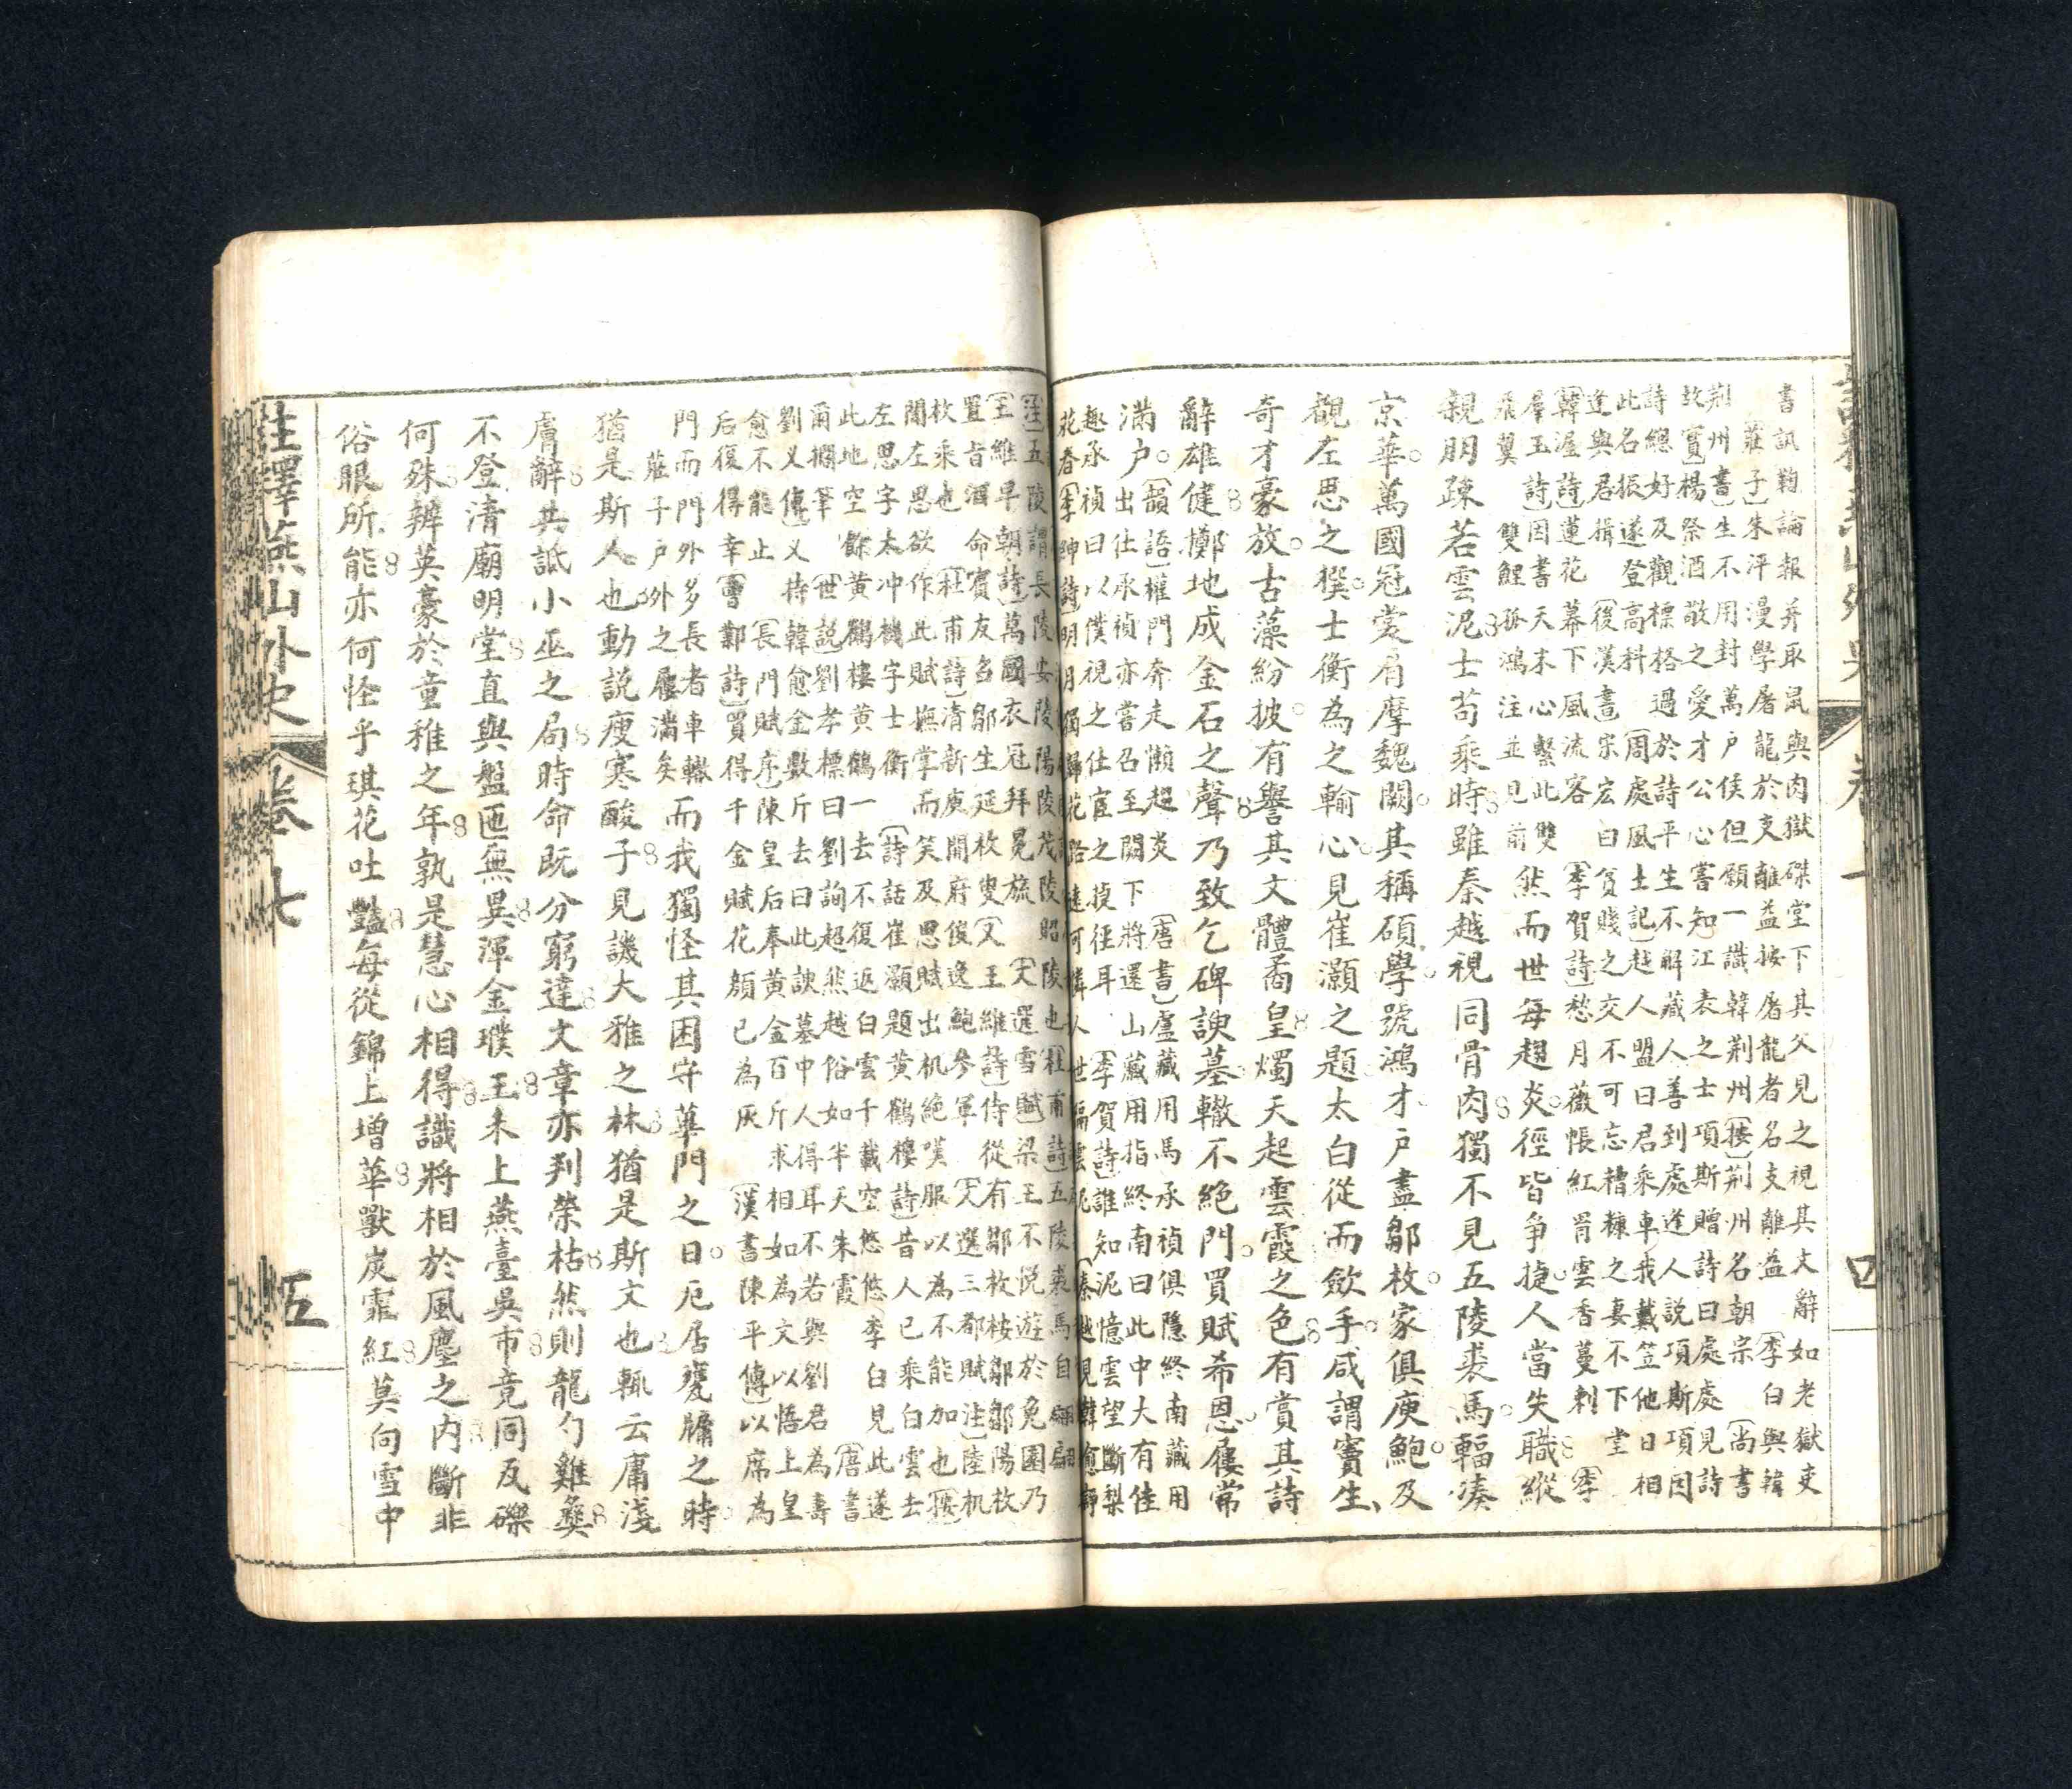 書訊鞫論報并取鼠與肉獄磔堂下其父見之視其文辭如老獄吏
莊子朱泙漫學屠龍於支離益按屠龍者名支離益
李白與韓
荆州書生不用封萬戶侯但願一識韓荆州按荆州名朝宗
尚書
故實楊祭酒敬之愛才公心嘗知江表之士項斯贈詩曰處處見詩
詩總好及觀標格過於詩平生不解藏人善到處逢人說項斯項因
此名振遂登高科
周處風土記越人盟曰君乘車我戴笠他日相
逢與君揖
後漢書宋宏曰貧賤之交不可忘糟糠之妻不下堂
韓渥詩蓮花幕下風流客
李賀詩愁月薇帳紅罥雲香蔓刺
李
羣玉詩因書天末心繫此雙
飛翼
雙鯉孤鴻注並見前
然而世每趨炎徑皆爭捷人當失職縱
親朋疎若雲泥士苟乘時雖秦越視同骨肉獨不見五陵裘馬輻湊
京華萬國冠裳有摩魏闕其稱碩學號鴻才戶盡鄒枚家俱庾鮑及
覩左思之撰士衡為之輸心見崔灝之題太白從而歛手咸謂竇生
奇才豪放古藻紛披有譽其文體矞皇燭天起雲霞之色有賞其詩
辭雄健擲地成金石之聲乃致乞碑諛墓轍不絕門買賦希恩屨常
滿户
韻語權門奔走懶趨炎
唐書盧藏用馬承禎俱隱終南藏用
出仕承禎亦嘗召至闕下將還山藏用指終南曰此中大有佳
趣承禎曰以僕視之仕宦之捷徑耳
李賀詩誰知泥憶雲望斷梨
花春
李紳詩明月獨歸花路遠可憐人世隔雲泥
秦越見韓愈
注五陵謂長陵安陵陽陵茂陵昭陵也
杜甫詩五陵裘馬自翩翩
王維早朝詩萬國衣冠拜冕旒
文選雪賦梁王不悅遊於兔園乃
置旨酒命賓友召鄒生延枚叟
又王維詩侍從有鄒枚按鄒鄒陽枚
枚乘也
杜甫詩清新庾開府俊逸鮑參軍
文選三都賦注陸机
聞左思欲作此賦撫掌而笑及思賦出机絕嘆服以為不能加也按
左思字太冲機字士衡
詩話崔灝題黄鶴樓詩昔人已乘白雲去
此地空餘黄鶴樓黄鶴一去不復返白雲千載空悠悠李白見此遂
爾擱筆
世說劉孝標曰劉詢超然越俗如半天朱霞
唐書
劉义傳义持韓愈金數斤去曰此諛墓中人得耳不若與劉君為壽
愈不能止
長門賦序陳皇后奉黄金百斤求相如為文以悟上皇
后復得幸
會鄴詩買得千金賦花顏已為灰
漢書陳平傳以席為
門而門外多長者車轍
莊子户外之屨滿矣
而我獨怪其困守蓽門之日厄居甕牖之時
猶是斯人也動說瘦寒酸子見譏大雅之林猶是斯文也輒云庸淺
膚辭共詆小巫之局時命既分窮達文章亦判榮枯然則龍勺雞彝
不登清廟明堂直與盤匜無異渾金璞玉未上燕臺吳市竟同瓦礫
何殊辨英豪於童稚之年孰是慧心相得識將相於風塵之内斷非
俗眼所能亦何怪乎琪花吐豔每從錦上增華獸炭霏紅莫向雪中
註釋燕山外史 卷七 五